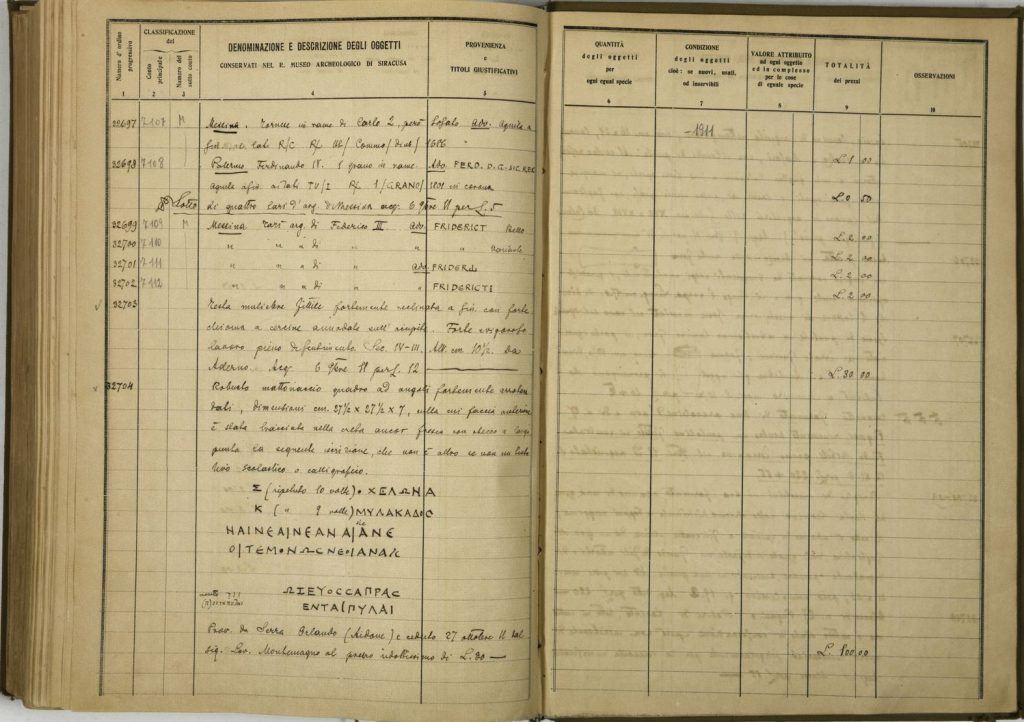 Numero d'ordine progressivo
CLASSIFICAZIONE del
Conto principale
Numero del sotto conto
DENOMINAZIONE E DESCRIZIONE DEGLI OGGETTI
CONSERVATI NEL R. MUSEO ARCHEOLOGICO DI SIRACUSA
PROVENIENZA
e
TITOLI GIUSTIFICATIVI
QUANTITÀ
degli oggetti
per
ogni egual specie
CONDIZIONE
degli oggetti
cioè: se nuovi, usati,
od inservibili
VALORE ATTRIBUITO
ad ogni oggetto
ed in complesso
per le cose
di eguale specie
TOTALITÀ
dei prezzi
OSSERVAZIONI
1 2 3 4 5 6 7 8 9 10
32697 7107 M Messina. Tornese in rame di Carlo 2, però Ado. Aquila a
1686
-1911
32698 7108 Palermo Ferdinando IV. 1 grano in rame. Ado. FERD. D.G. SIC. REX
L. 1 00
aquila ai lati 1/GRANO/ 1801 in corona
Lotto di quattro tarì d'arg. di Messina acq. 6 9bre 11 per L. 5
L. 0 50
32699 7109 M Messina Tarì arg. di Federico III Ado FRIDERICT
L. 2 00
32700 7110 " " " di " " "
L. 2 00
32701 7111 " " " di " Ado. FRIDER
L. 2 00
32702 7112 " " " di " FRIDERICTI
L. 2 00
32703 Testa muliebre fittile fortemente reclinata a sin. con forte
chioma a cercine annodata sull' . Forte vigoroso
lavoro pieno di sentimento. Sec. IV-III. Alt. cm. 10½. Da
Adernò. Acq. 6 9bre 11 per L. 12
L. 30.00
32704 Robusto mattonaccio quadro ad angoli fortemente arroton
dati, dimensioni cm. 27½ x 27½ x 7, sulla cui faccia anteriore
è stata tracciata nella creta ancor fresca con stecco a larga
punta la seguente iscrizione, che non è altro se non un
scolastico o calligrafico.
Σ (ripetuto 10 volte) • ΧΕΛΩΝΑ
Κ (" 9 volte) ΜΥΛΑΚΑΔΟΣ
ΗΑΙΝΕΑ|ΝΕΑΝΑ|ΑΝΕ
Ο|ΤΕΜΟΝΩΣΝΕΟ|ΑΝΑΚ
ΩΙΞΕΥΟΣΣΑΠΡΑΣ
ΕΝΤΑ|ΠΥΛΑΙ
Prov. da Serra Orlando (Aidone) e ceduto 27 ottobre 11 dal
sig. Gov. Montemagno al prezzo ridottissimo di L. 30 —
L. 100.00